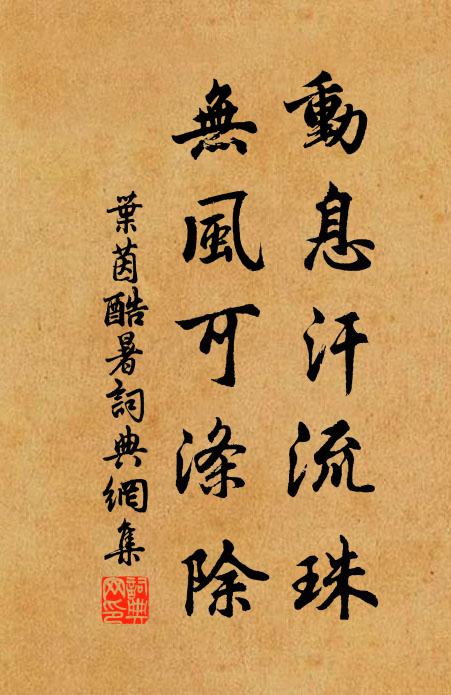 動息汗流珠
無風可滌除
葉茵酷暑詞典網集
詞典网印